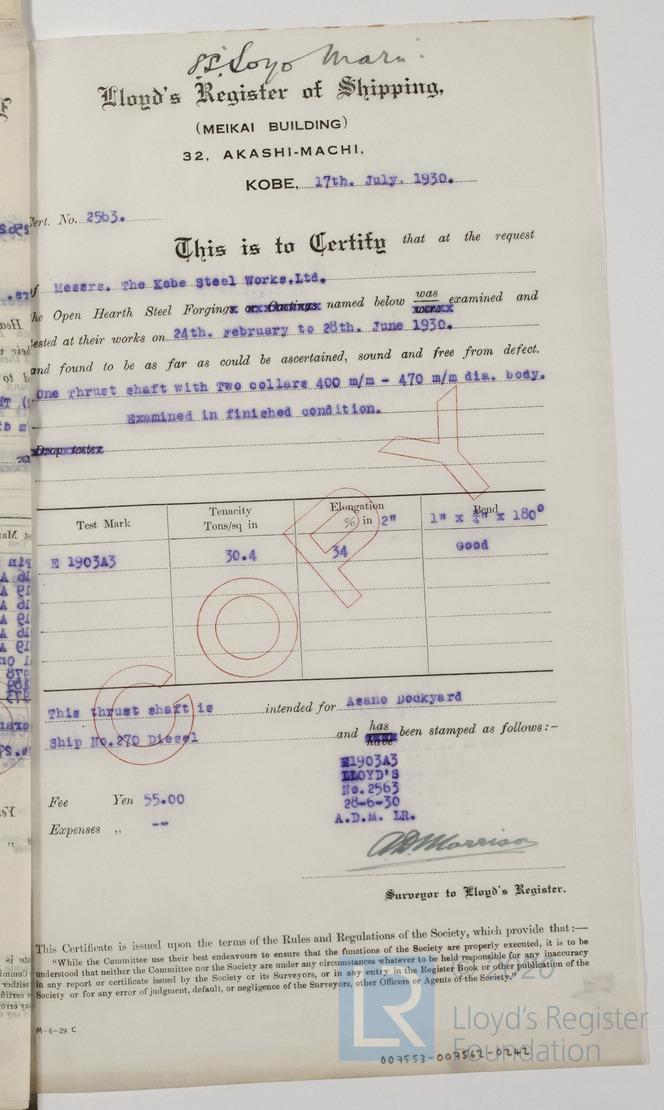 S.S. Soyo Maru.
Lloyd's Register of Shipping,
(MEIKAI BUILDING)
32, AKASHI-MACHI,
KOBE, 17th. July. 1930.
Cert. No. 2563.
This is to Certify that at the request
of Messrs. The Kobe Steel Works,Ltd.
the Open Hearth Steel Forgings or Castings named below was were examined and
tested at their works on 24th. February to 28th. June 1930.
and found to be as far as could be ascertained, sound and free from defect.
One Thrust shaft with Two collars 400 m/m - 470 m/m dia. body.
Examined in finished condition.
Drop tests
Test Mark Tenacity Tons/sq in Elongation % in 2" Bend 1" x ¾" x 180°
E 1903A3 30.4 34 Good
COPY
This thrust shaft is intended for Asano Dockyard
Ship No.270 Diesel and has have been stamped as follows:–
E1903A3
LLOYD'S
No.2563
28-6-30
A.D.M. LR.
Fee Yen 55.00
Expenses „ --
A D Morrison
Surveyor to Lloyd's Register.
This Certificate is issued upon the terms of the Rules and Regulations of the Society, which provide that :—
"While the Committee use their best endeavours to ensure that the functions of the Society are properly executed, it is to be
understood that neither the Committee nor the Society are under any circumstances whatever to be held responsible for any inaccuracy
in any report or certificate issued by the Society or its Surveyors, or in any entry in the Register Book or other publication of the
Society or for any error of judgment, default, or negligence of the Surveyors, other Officers or Agents of the Society."
M-6-29 C
© 2020
LR
Lloyd's Register
Foundation
007553-007562-0242